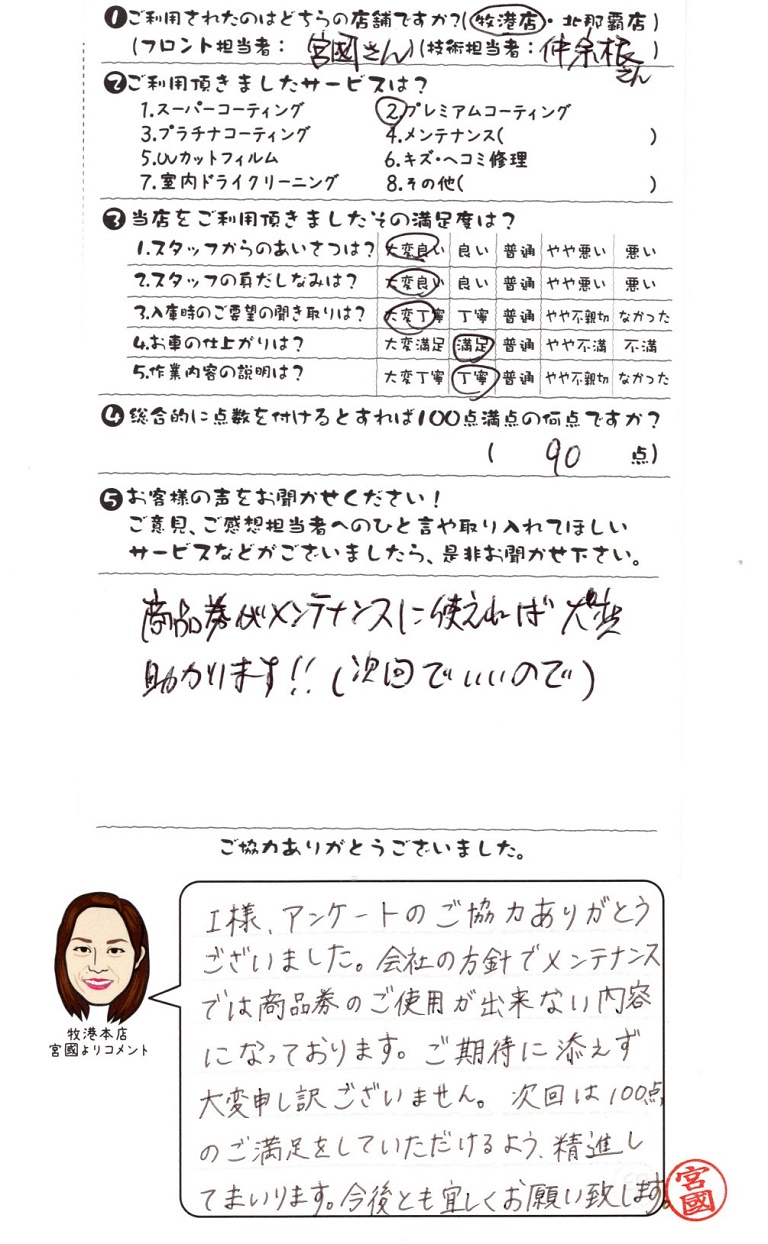 ❶ご利用されたのはどちらの店舗ですか?(牧港店・北那覇店)
(フロント担当者: 宮國さん)(技術担当者:仲余根さん)
❷ご利用頂きましたサービスは?
1.スーパーコーティング 2.プレミアムコーティング
3.プラチナコーティング 4.メンテナンス( )
5.UVカットフィルム 6.キズ・ヘコミ修理
7.室内ドライクリーニング 8.その他( )
❸当店をご利用頂きましたその満足度は?
1.スタッフからのあいさつは? 大変良い 良い 普通 やや悪い 悪い
2.スタッフの身だしなみは? 大変良い 良い 普通 やや悪い 悪い
3.入庫時のご要望の聞き取りは? 大変丁寧 丁寧 普通 やや不親切 なかった
4.お車の仕上がりは? 大変満足 満足 普通 やや不満 不満
5.作業内容の説明は? 大変丁寧 丁寧 普通 やや不親切 なかった
❹総合的に点数を付けるとすれば100点満点の何点ですか?
( 90 点)
❺お客様の声をお聞かせください!
ご意見、ご感想担当者へのひと言や取り入れてほしい
サービスなどがございましたら、是非お聞かせ下さい。
商品券がメンテナンスに使えれば大変
助かります!!(次回でいいので)
ご協力ありがとうございました。
I様、アンケートのご協力ありがとう
ございました。会社の方針でメンテナンス
では商品券のご使用が出来ない内容
になっております。ご期待に添えず
大変申し訳ございません。次回は100点
のご満足をしていただけるよう、精進し
てまいります。今後とも宜しくお願い致します。
牧港本店
宮國よりコメント
宮國